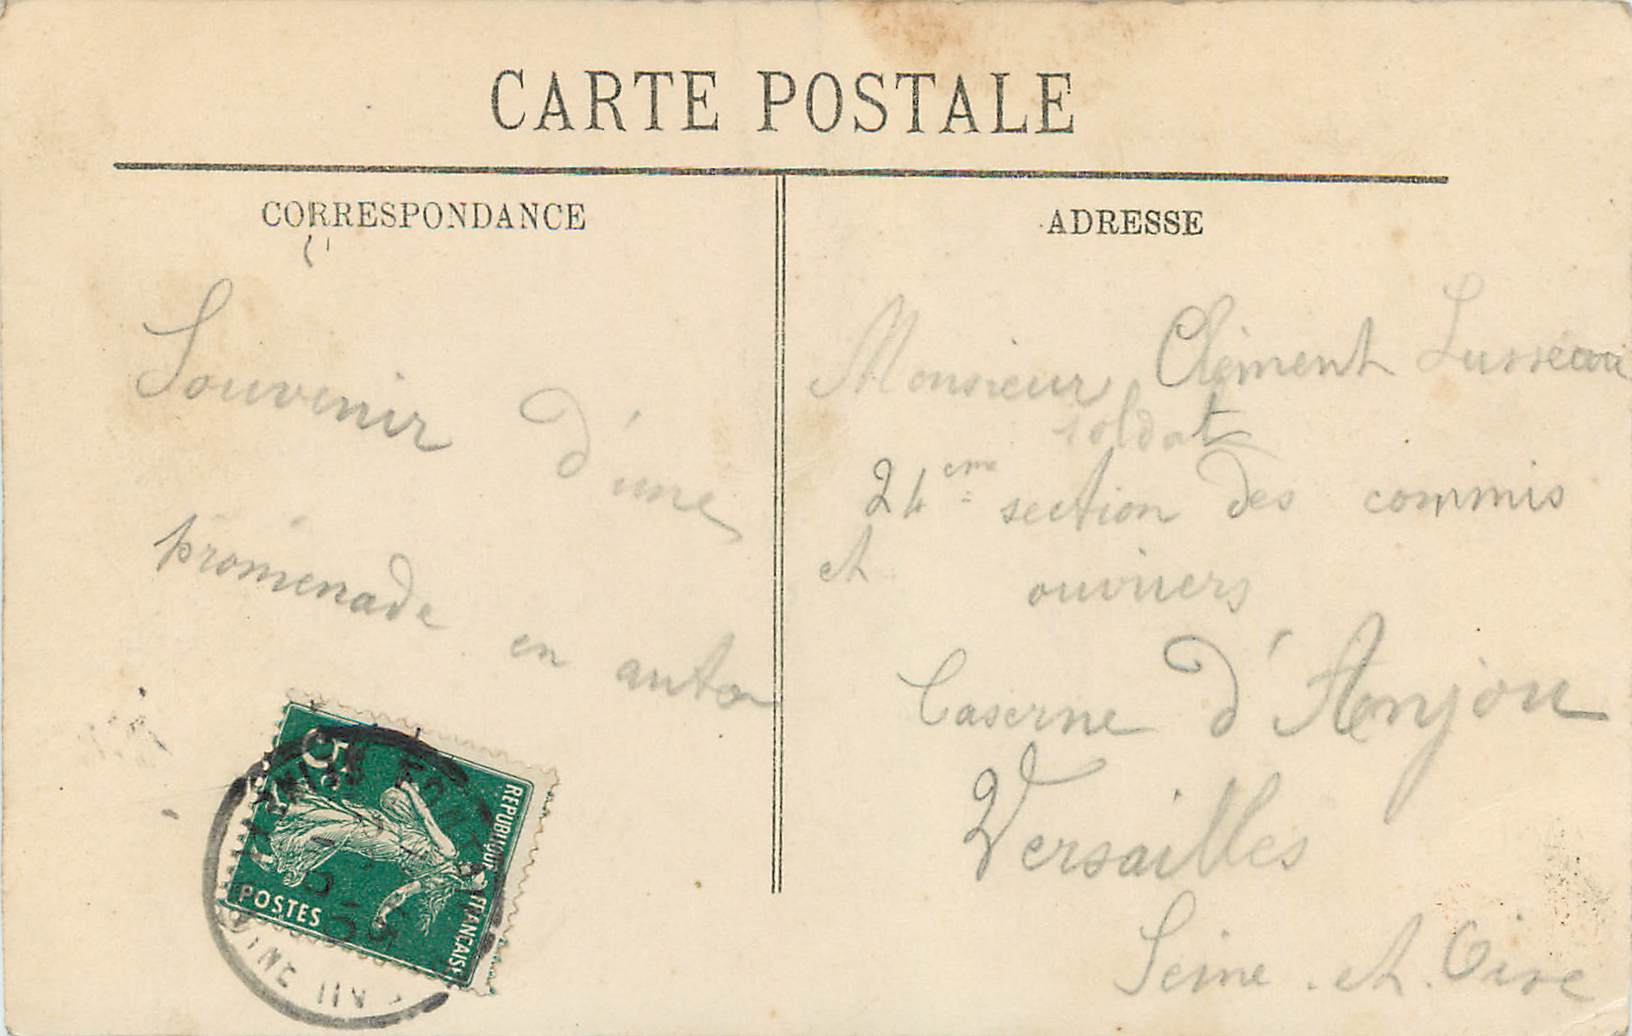 CARTE POSTALE
CORRESPONDANCE
Souvenir d'une
promenade en auto
ADRESSE
Monsieur Clément Lusseau
soldat
24eme section des commis
et ouvriers
Caserne d'Anjou
Versailles
Seine. et. Oise
5
REPUBLIQUE FRANÇAISE
POSTES